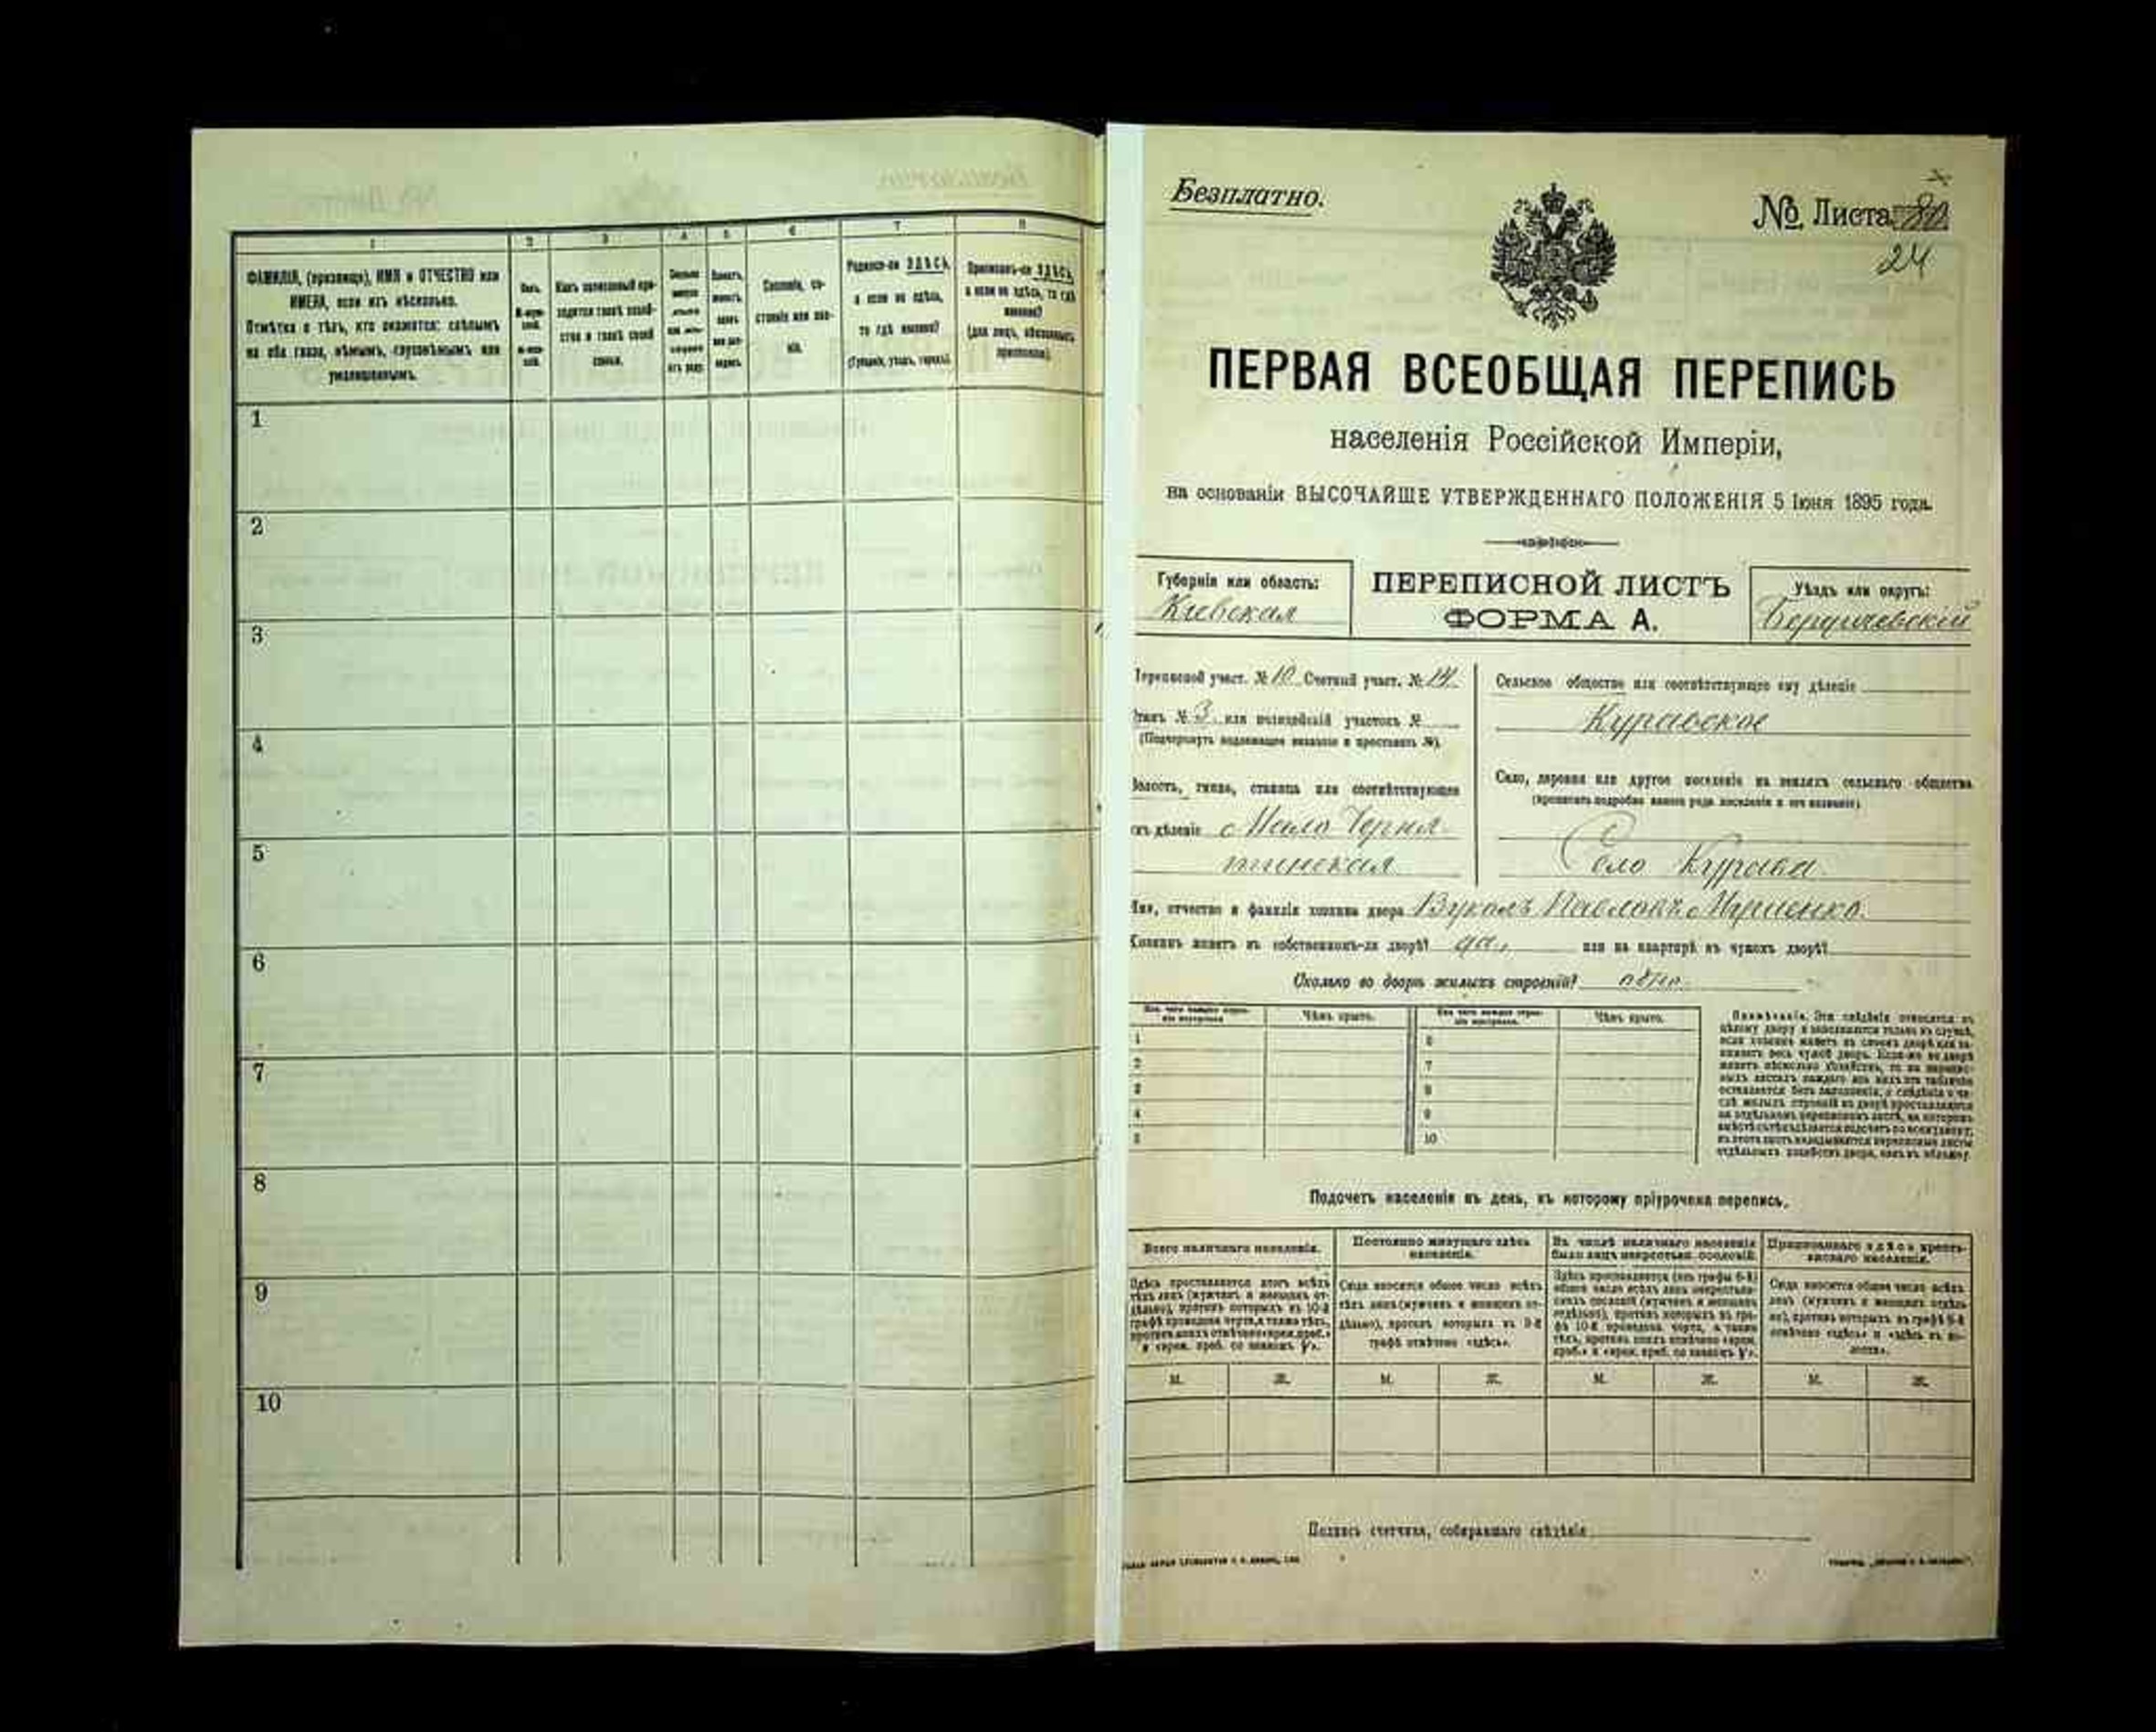 1
2
3
4
6
7
8
ФАМИЛІЯ, (прозвище), ИМЯ и ОТЧЕСТВО или
ИМЕНА, если ихъ нѣсколько.
Отмѣтка о тѣхъ, кто окажется: слѣпымъ
на оба глаза, нѣмымъ, глухонѣмымъ или
умалишеннымъ.
Какъ записанный при-
ходится главѣ хозяй-
ства и главѣ своей
семьи.
Сословіе, со-
стояніе или зва-
ніе.
Родился-ли ЗДѢСЬ,
а если не здѣсь,
то гдѣ именно?
(Губернія, уѣздъ, городъ).
Приписанъ-ли ЗДѢСЬ,
а если не здѣсь, то гдѣ
именно?
(для лицъ, обязанныхъ
припискою).
1
2
3
4
5
6
7
8
9
10
Безплатно.
№ Листа
24
ПЕРВАЯ ВСЕОБЩАЯ ПЕРЕПИСЬ
населенія Россійской Имперіи,
на основаніи ВЫСОЧАЙШЕ УТВЕРЖДЕННАГО ПОЛОЖЕНІЯ 5 Іюня 1895 года.
Губернія или область:
Кіевская
ПЕРЕПИСНОЙ ЛИСТЪ
ФОРМА А.
Уѣздъ или округъ:
Бердичевскій
Переписной участ. № 10 Счетный участ. № 14
Станъ № 3 или полицейскій участокъ №
(Подчеркнуть надлежащее названіе и проставить №).
Волость, гмина, станица или соотвѣтствующее
имъ дѣленіе Мало Черня-
тинская
Сельское общество или соотвѣтствующее ему дѣленіе
Куравское
Село, деревня или другое поселеніе на земляхъ сельскаго общества
(прописать подробно какого рода поселеніе и его названіе)
Село Курава
Имя, отчество и фамилія хозяина двора Вуколъ Павловъ
Хозяинъ живетъ въ собственномъ-ли дворѣ? да или на квартирѣ въ чужомъ дворѣ?
Сколько во дворѣ жилыхъ строеній? одно
Изъ чего каждое строе-
ніе построено.
Чѣмъ крыто.
Изъ чего каждое строе-
ніе построено.
Чѣмъ крыто.
1
2
3
4
5
6
7
8
9
10
Примѣчаніе. Эти свѣдѣнія относятся къ
цѣлому двору и заполняются только въ случаѣ,
если хозяинъ живетъ въ своемъ дворѣ или за-
нимаетъ весь чужой дворъ. Если-же во дворѣ
живетъ нѣсколько хозяйствъ, то на перепис-
ныхъ листахъ каждаго изъ нихъ эта табличка
оставляется безъ заполненія, а свѣдѣнія о чи-
слѣ жилыхъ строеній въ дворѣ проставляются
на отдѣльномъ переписномъ листѣ, на которомъ
въ этотъ листъ вкладываются переписные листы
отдѣльныхъ хозяйствъ двора, какъ въ обложку.
Подсчетъ населенія въ день, къ которому пріурочена перепись.
Всего наличнаго населенія.
Постоянно живущаго здѣсь
населенія.
Въ числѣ наличнаго населенія
было лицъ некрестьян. сословій.
Приписаннаго здѣсь кресть-
янскаго населенія.
Здѣсь проставляется итогъ всѣхъ
тѣхъ лицъ (мужчинъ и женщинъ от-
дѣльно), противъ которыхъ въ 10-й
графѣ проведена черта, а также тѣхъ,
противъ коихъ отмѣчено «врем. преб.»
и «врем. преб. со знакомъ V».
Сюда вносится общее число всѣхъ
тѣхъ лицъ (мужчинъ и женщинъ от-
дѣльно), противъ которыхъ въ 9-й
графѣ отмѣчено «здѣсь».
Здѣсь проставляется (изъ графы 6-й)
общее число всѣхъ лицъ некрестьян-
скихъ сословій (мужчинъ и женщинъ
отдѣльно), противъ которыхъ въ гра-
фѣ 10-й проведена черта, а также
тѣхъ, противъ коихъ отмѣчено «врем.
преб.» и «врем. преб. со знакомъ V».
Сюда вносится общее число всѣхъ
лицъ (мужчинъ и женщинъ отдѣль-
но), противъ которыхъ въ графѣ 8-й
отмѣчено «здѣсь» и «здѣсь въ во-
лости».
М.
Ж.
М.
Ж.
М.
Ж.
М.
Ж.
Подпись счетчика, собиравшаго свѣдѣнія